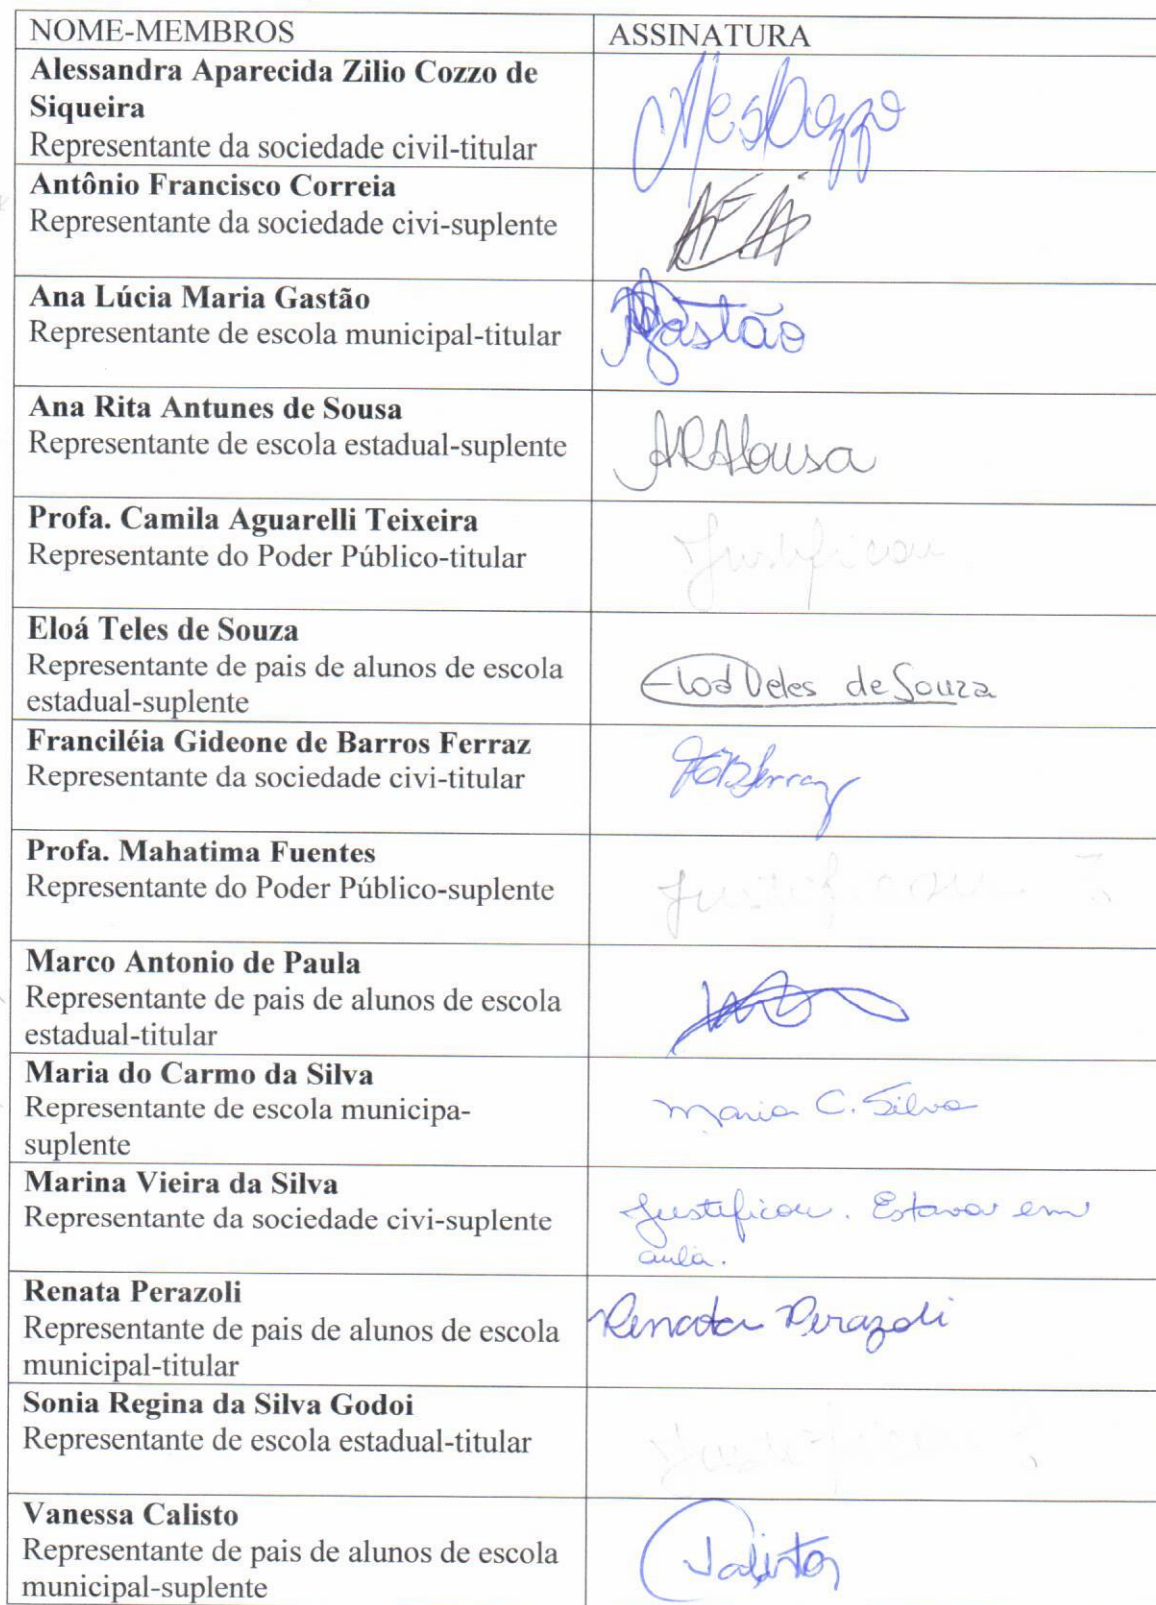 NOME-MEMBROS
ASSINATURA
Alessandra Aparecida Zilio Cozzo de
Siqueira
Representante da sociedade civil-titular
Antônio Francisco Correia
Representante da sociedade civi-suplente
Ana Lúcia Maria Gastão
Representante de escola municipal-titular
Gastão
Ana Rita Antunes de Sousa
Representante de escola estadual-suplente
ARASousa
Profa. Camila Aguarelli Teixeira
Representante do Poder Público-titular
Justificou
Eloá Teles de Souza
Representante de pais de alunos de escola
estadual-suplente
Eloá Teles de Souza
Franciléia Gideone de Barros Ferraz
Representante da sociedade civi-titular
FGBFerraz
Profa. Mahatima Fuentes
Representante do Poder Público-suplente
Justificou ?
Marco Antonio de Paula
Representante de pais de alunos de escola
estadual-titular
Maria do Carmo da Silva
Representante de escola municipa-
suplente
Maria C. Silva
Marina Vieira da Silva
Representante da sociedade civi-suplente
Justificou. Estava em
aula.
Renata Perazoli
Representante de pais de alunos de escola
municipal-titular
Renata Perazoli
Sonia Regina da Silva Godoi
Representante de escola estadual-titular
Justificou ?
Vanessa Calisto
Representante de pais de alunos de escola
municipal-suplente
Calisto